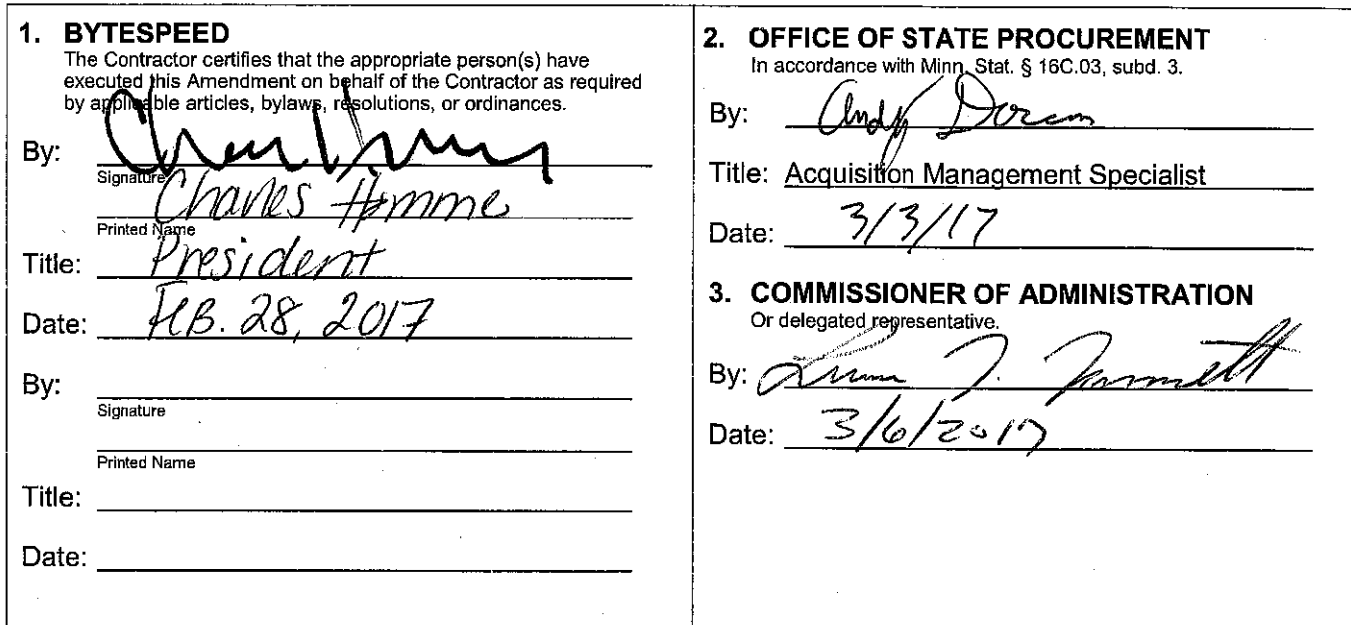 1. BYTESPEED
The Contractor certifies that the appropriate person(s) have
executed this Amendment on behalf of the Contractor as required
by applicable articles, bylaws, resolutions, or ordinances.
By:
Signature
Charles Homme
Printed Name
Title: President
Date: FEB. 28, 2017
By:
Signature
Printed Name
Title:
Date:
2. OFFICE OF STATE PROCUREMENT
In accordance with Minn. Stat. § 16C.03, subd. 3.
By: Andy Doran
Title: Acquisition Management Specialist
Date: 3/3/17
3. COMMISSIONER OF ADMINISTRATION
Or delegated representative.
By:
Date: 3/6/2017